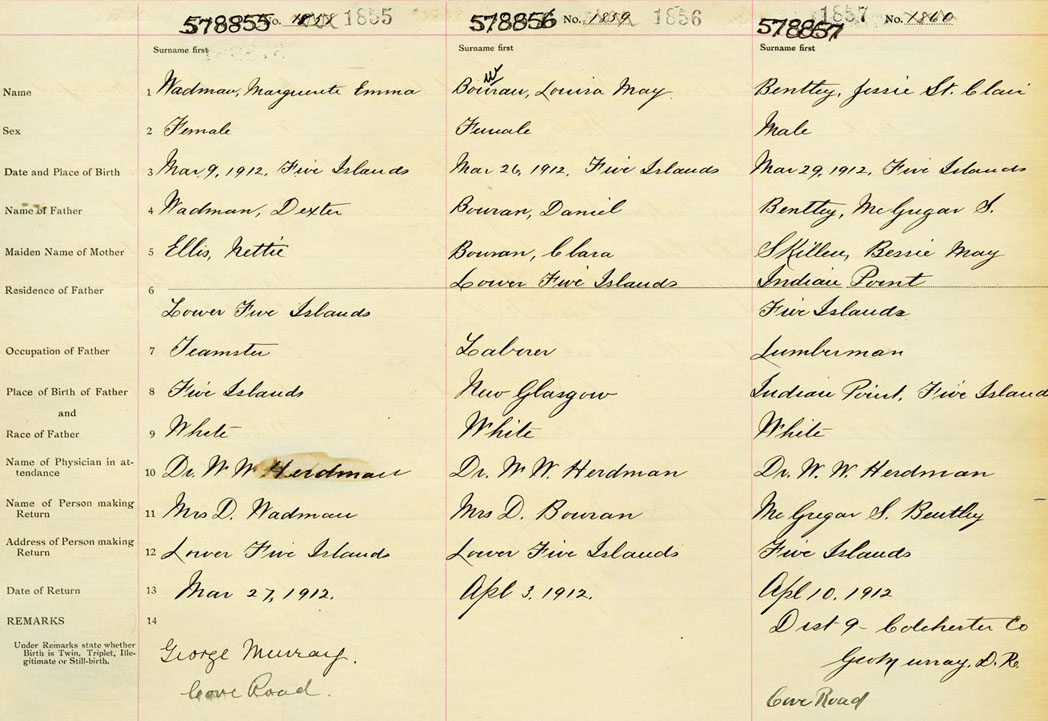 578855 No. 1858 1855 578856 No. 1859 1856 578857 1857 No. 1860
Surname first Surname first Surname first
Name 1 Wadman, Marguerite Emma Bowran, Louisa May Bentley, Jessie St. Clair
w
Sex 2 Female Female Male
Date and Place of Birth 3 Mar 9, 1912, Five Islands Mar 26, 1912, Five Islands Mar 29, 1912, Five Islands
Name of Father 4 Wadman, Dexter Bowran, Daniel Bentley, McGregar S.
Maiden Name of Mother 5 Ellis, Nettie Bowran, Clara Skillen, Bessie May
Residence of Father 6 Lower Five Islands Lower Five Islands Indian Point
Five Islands
Occupation of Father 7 Teamster Laborer Lumberman
Place of Birth of Father 8 Five Islands New Glasgow Indian Point, Five Islands
and
Race of Father 9 White White White
Name of Physician in at-
tendance 10 Dr. W W Herdman Dr. W. W. Herdman Dr. W. W. Herdman
Name of Person making
Return 11 Mrs D. Wadman Mrs D. Bowran McGregar S. Bentley
Address of Person making
Return 12 Lower Five Islands Lower Five Islands Five Islands
Date of Return 13 Mar 27, 1912. Apl 3, 1912. Apl 10, 1912
REMARKS 14 Dist 9 - Colchester Co
Under Remarks state whether
Birth is Twin, Triplet, Ille-
gitimate or Still-birth.
George Murray. Geo Murray, D. R.
Cove Road. Cove Road